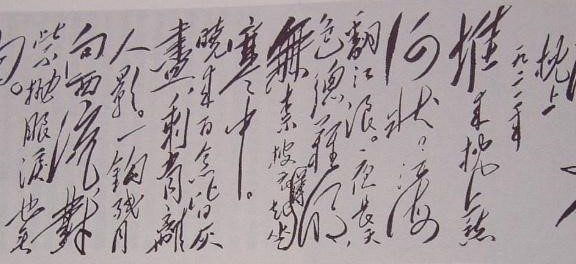 枕上
一九二一年
堆来枕上愁
何状?江海
翻江浪。夜长天
色总难明,
无奈披衣起坐薄
寒中。
晓来百念皆灰
尽,剩有离
人影。一钩残月
向西流,对
此不抛眼泪也无
由。